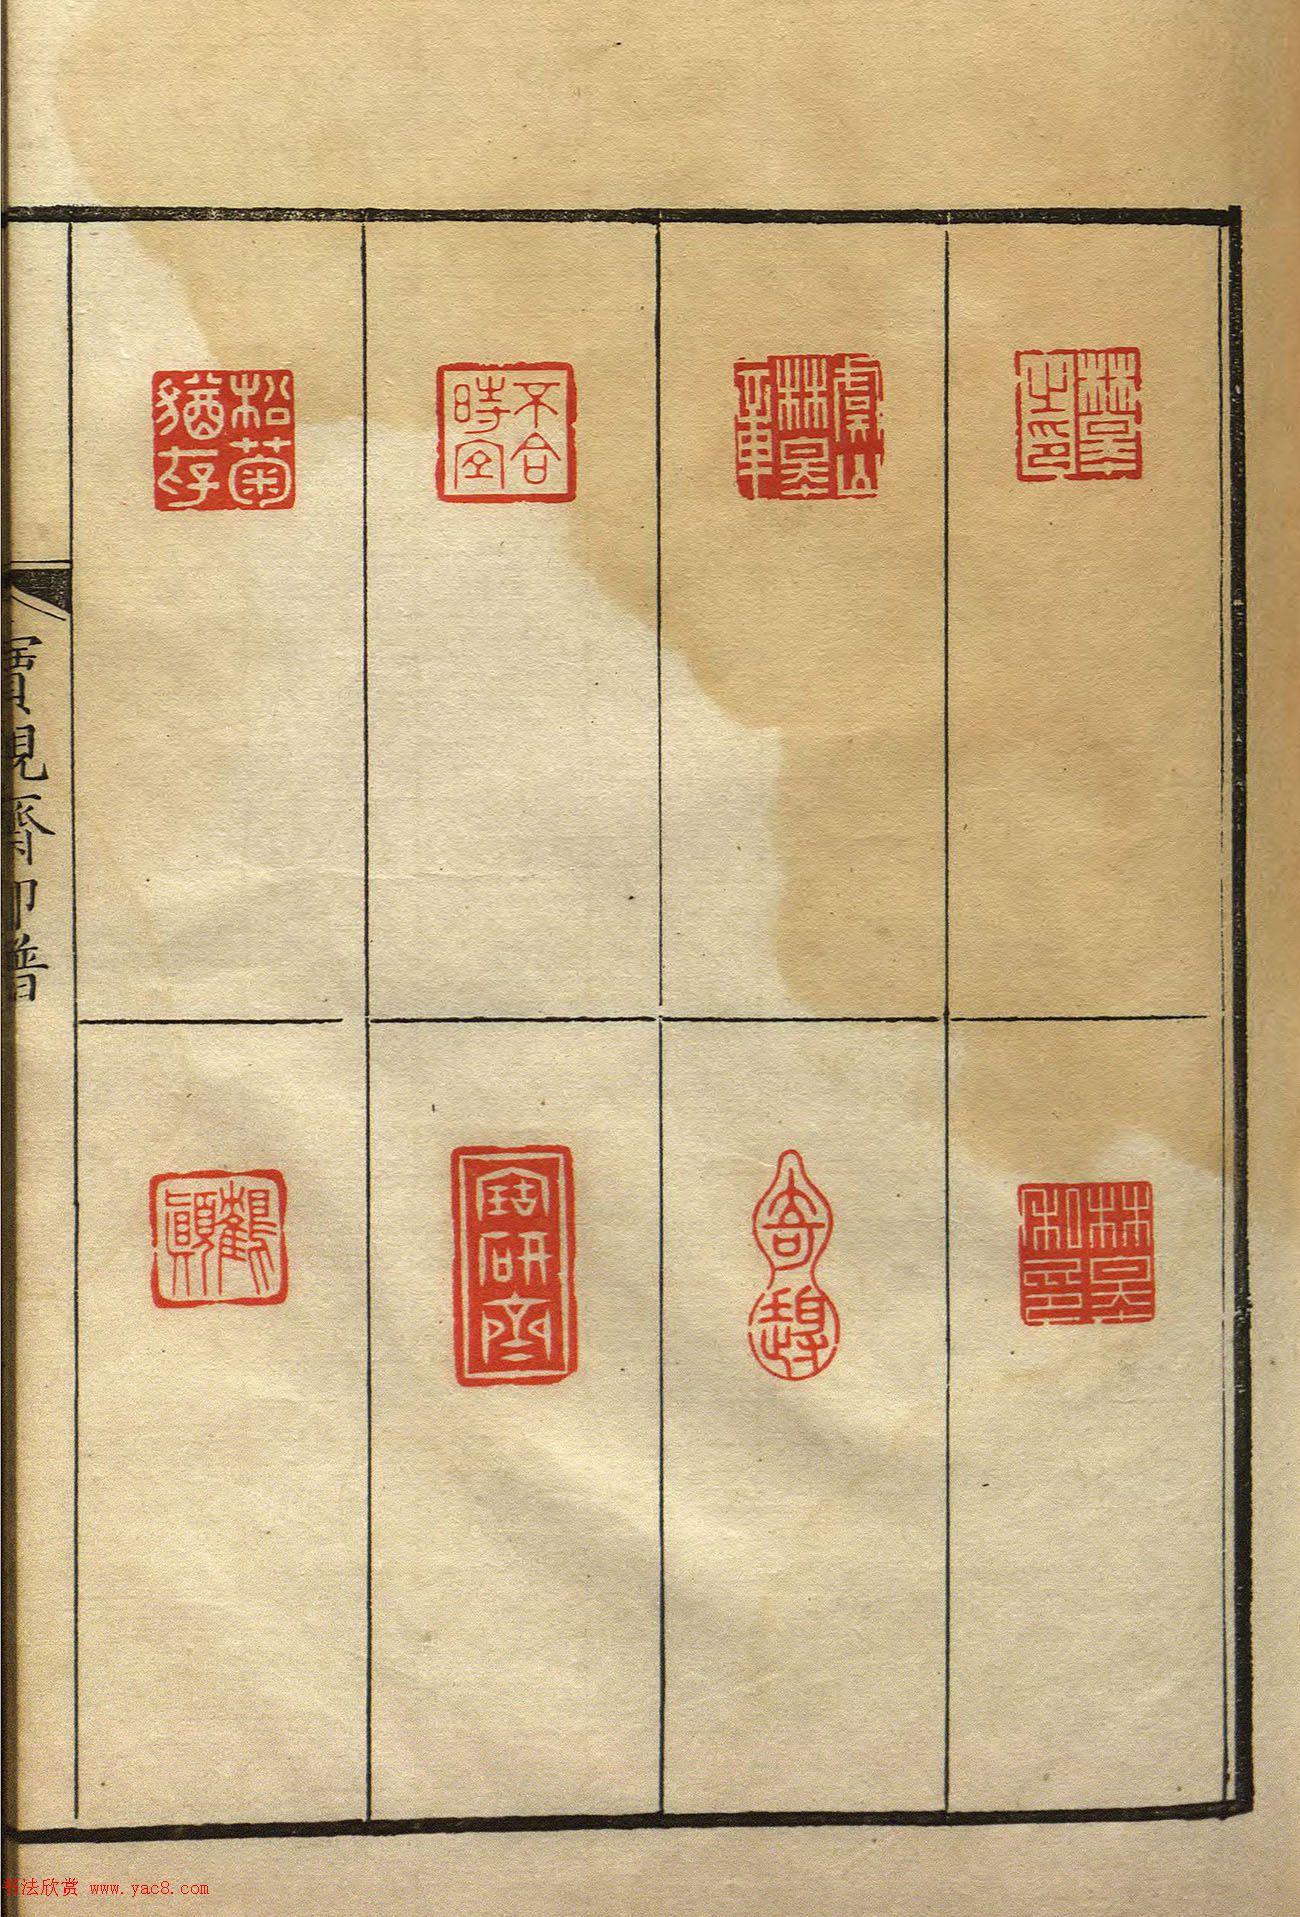 林皋之印
虞山林皋
不合時宜
松菊猶存
林皋私印
奇
寶研齋
鶴顛
寶硯齋印譜
书法欣赏 www.yac8.com